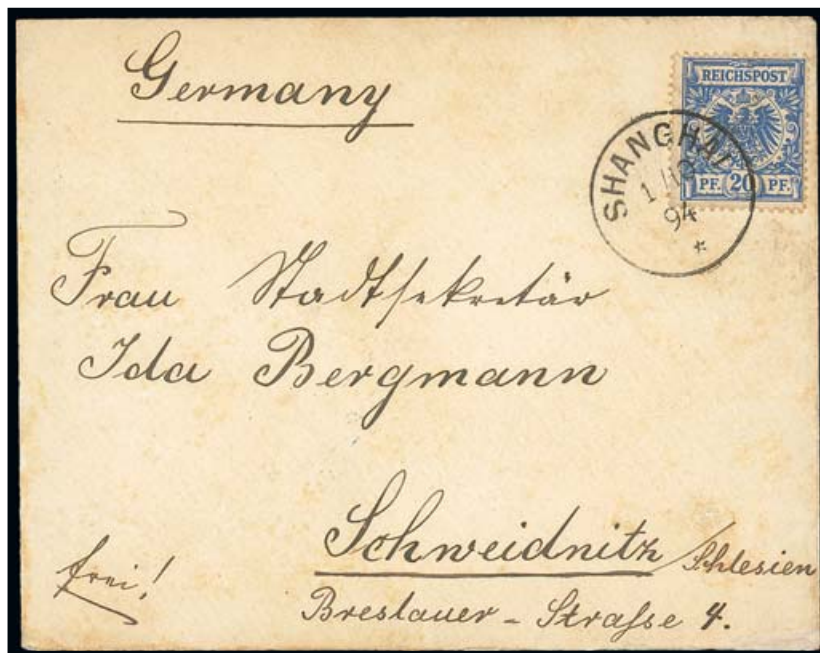 Germany
REICHSPOST
PF. 20 PF.
SHANGHAI
94
*
Frau Stadtsekretär
Ida Bergmann
Schweidnitz / Schlesien
frei!
Breslauer - Straße 4.